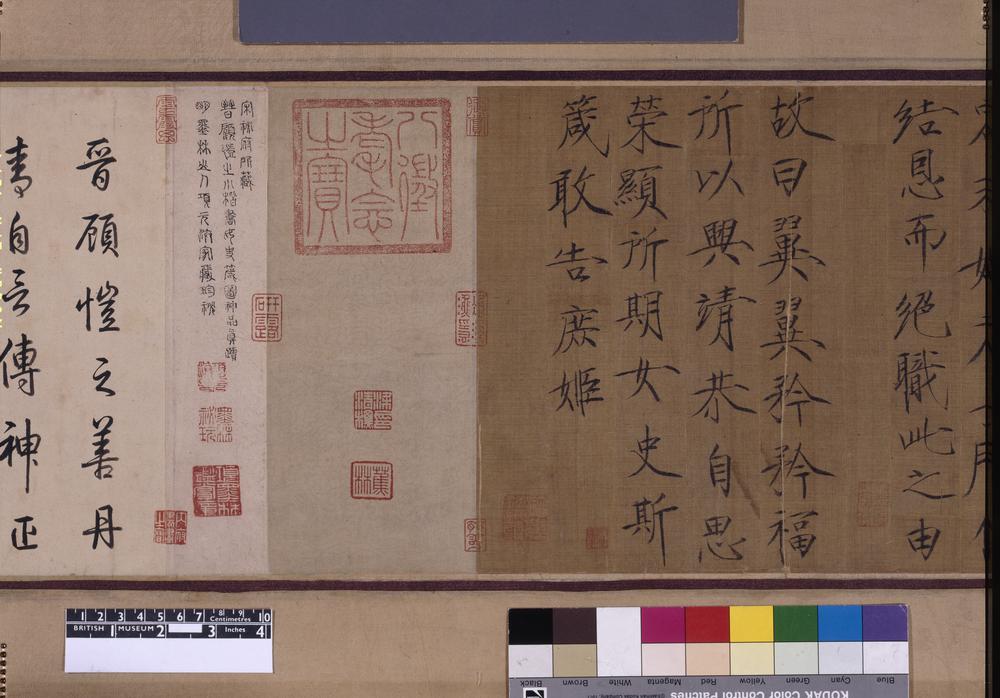 結恩而絕職此之由
故曰翼翼矜矜福
所以興靖恭自思
榮顯所期女史斯
箴敢告庶姬
八徵
耄念
之寶
蕉林
宋祕府所藏
晉顧愷之小楷書女史箴圖神品真蹟
明墨林山人項元汴家藏珍祕
晉顧愷之善丹
青自云傳神正
1 2 3 4 5 6 7 8 9 10
Centimetres
BRITISH 1 MUSEUM 2 3 Inches 4
Blue Cyan Green Yellow Red Magenta White Brown Black
KODAK Color Control Patches